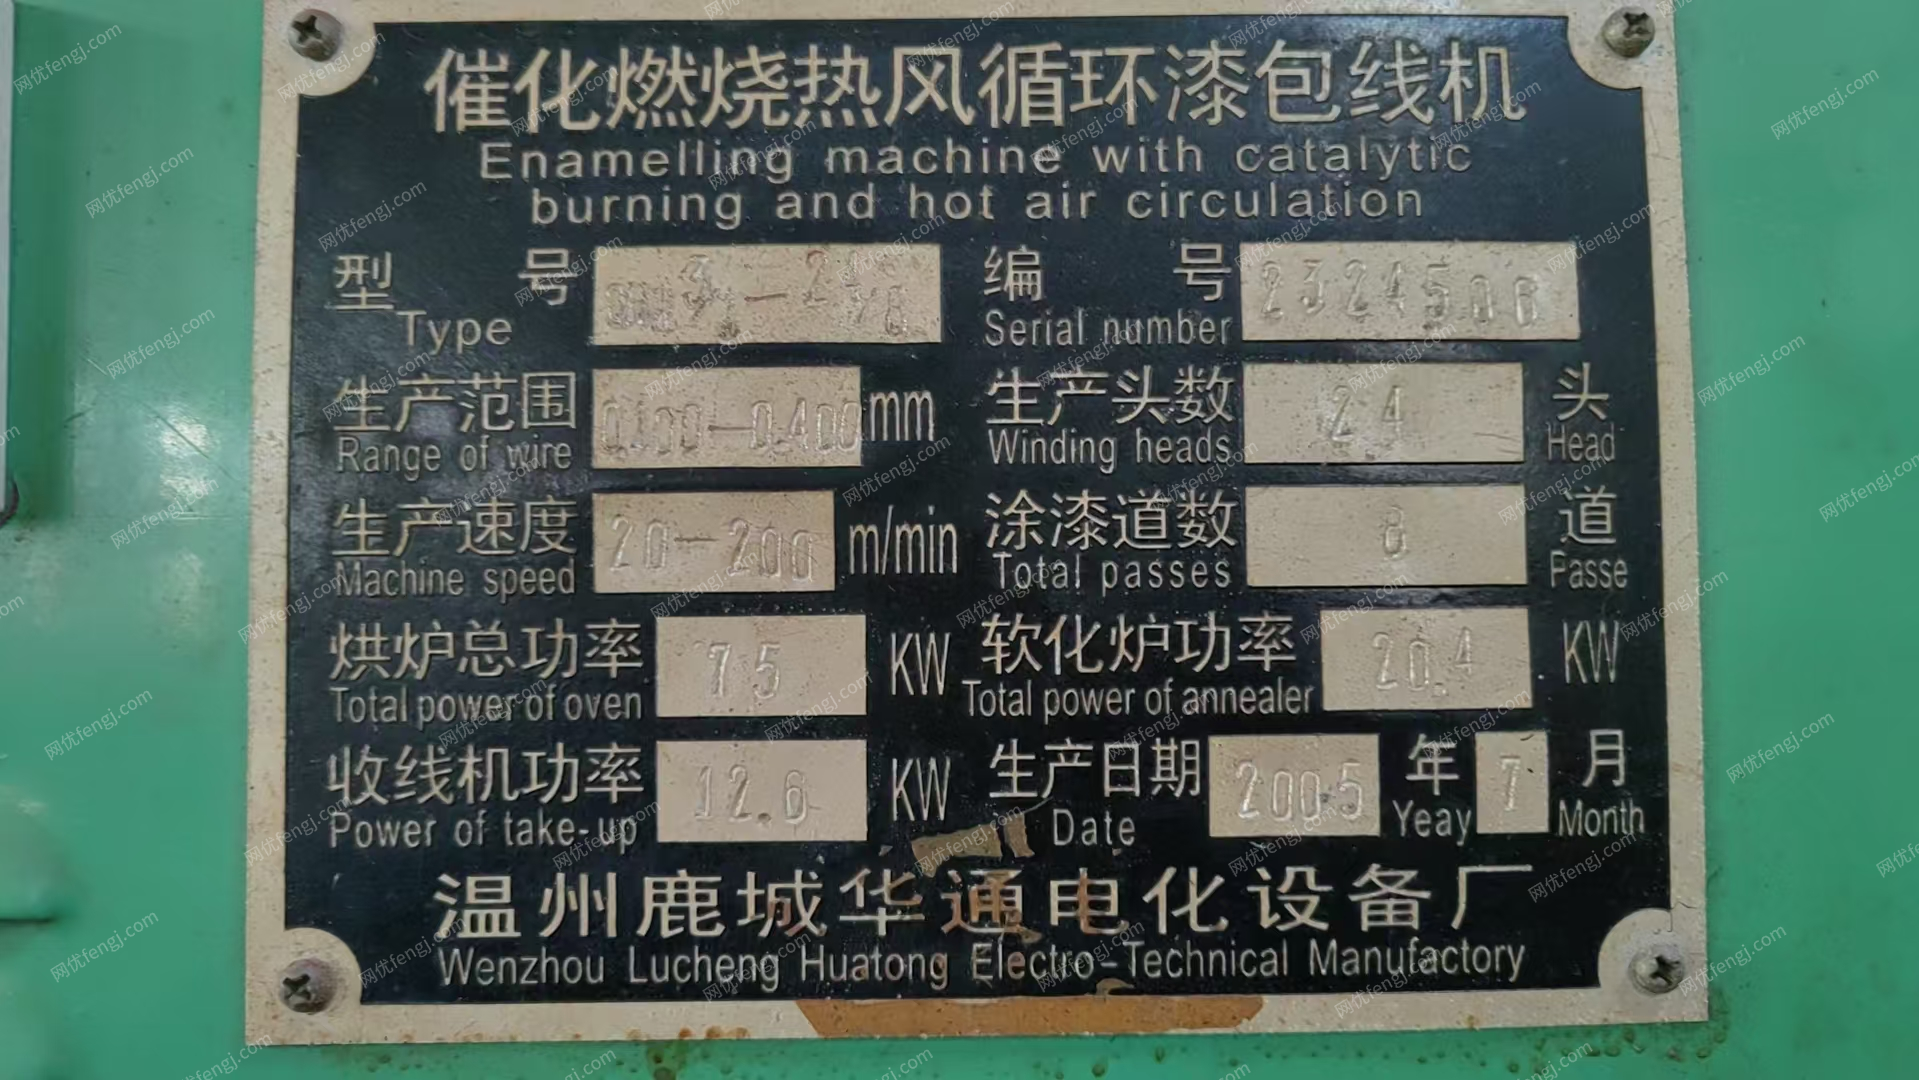 催化燃烧热风循环漆包线机
Enamelling machine with catalytic
burning and hot air circulation
型 号 Type
编 号 Serial number 2324506
生产范围 Range of wire 0.100-0.400 mm
生产头数 Winding heads 24 头 Head
生产速度 Machine speed 20-200 m/min
涂漆道数 Total passes 8 道 Passe
烘炉总功率 Total power of oven 75 KW
软化炉功率 Total power of annealer 20.4 KW
收线机功率 Power of take-up 12.6 KW
生产日期 Date 2005 年 Yeay 7 月 Month
温州鹿城华通电化设备厂
Wenzhou Lucheng Huatong Electro-Technical Manufactory
网优fengj.com